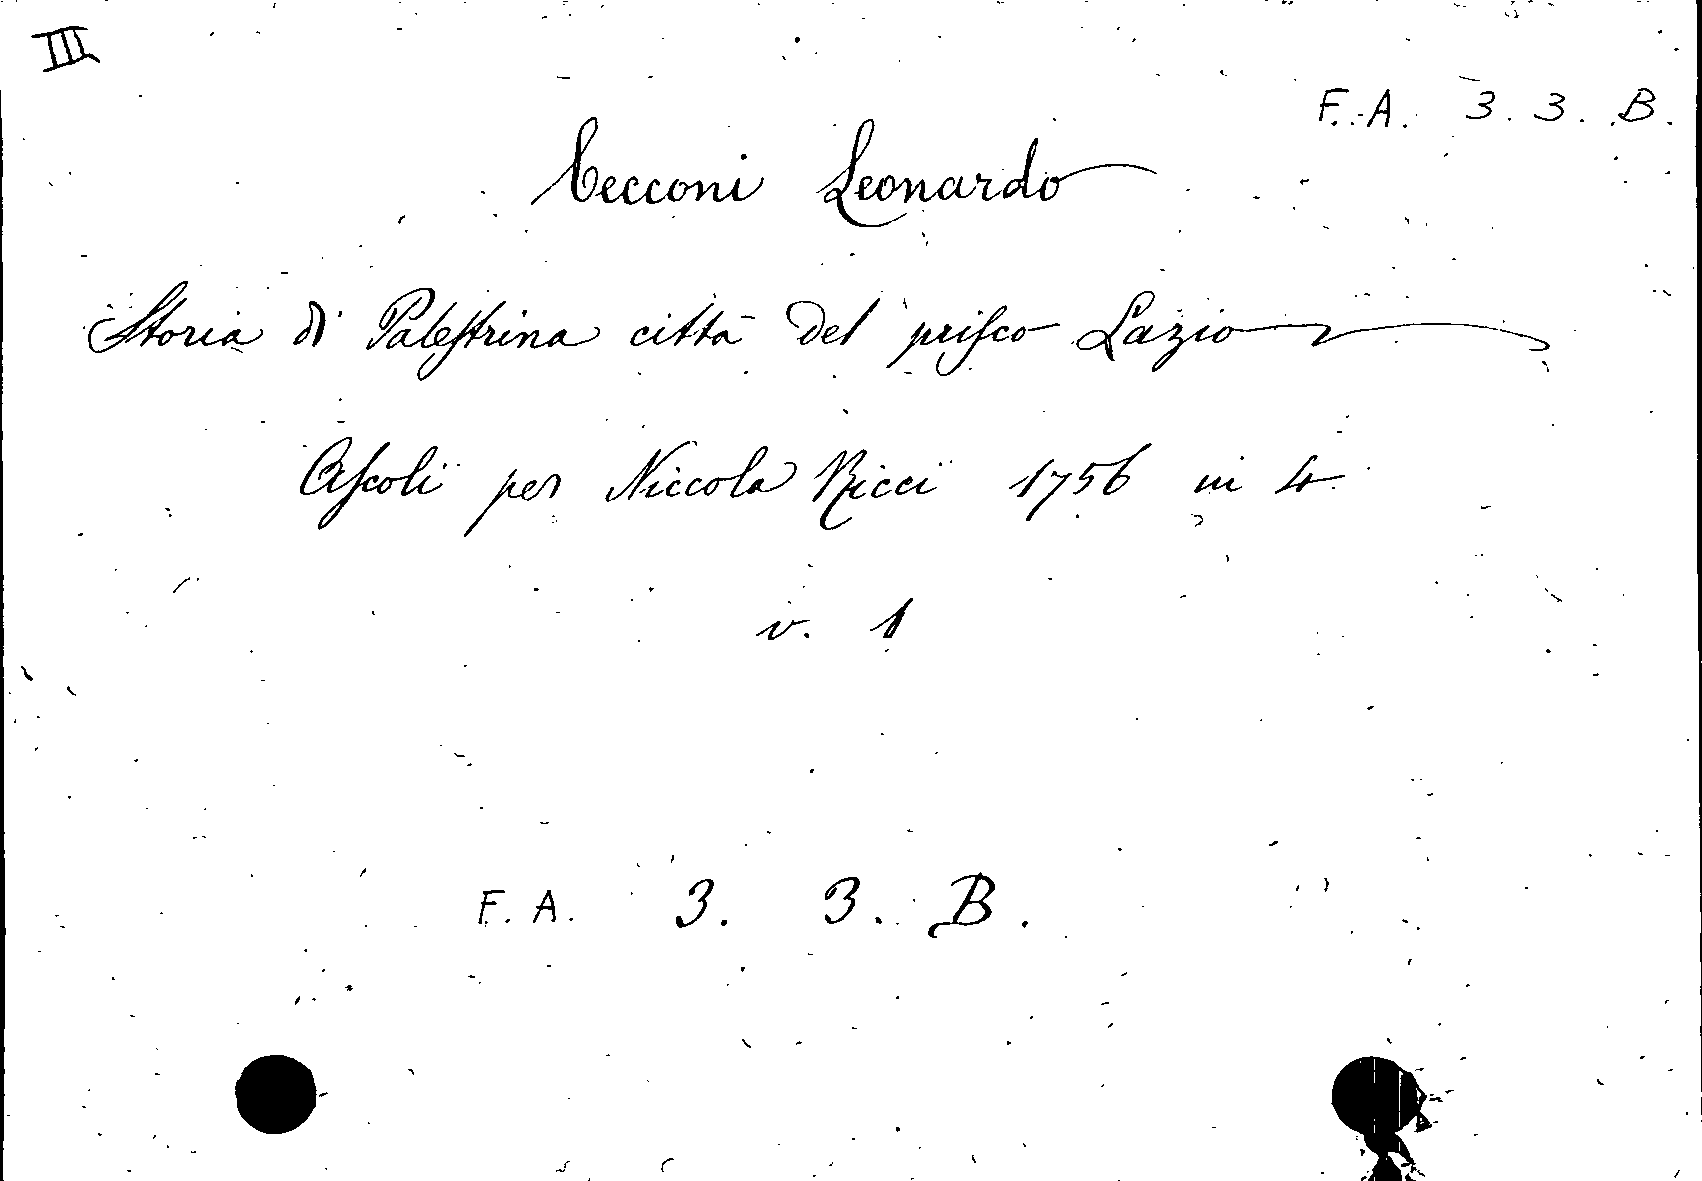 III
F. A. 3. 3. B.
Cecconi Leonardo
Storia di Paleſtrina città del priſco Lazio
Aſcoli per Niccola Ricci 1756 in 4
v. 1
F. A. 3. 3. B.